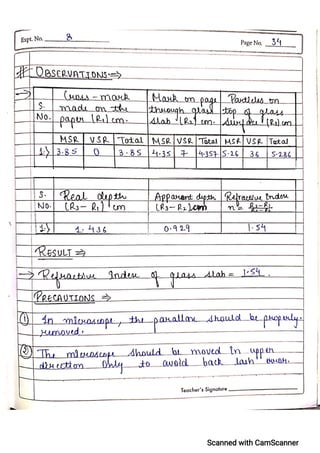 Expt. No. 8
Page No. 34
# OBSERVATIONS ⇒
S. No.
Cross-mark made on the paper (R1) cm.
Mark on page through glass slab (R2) cm.
Particles on top of glass surface (R3) cm
MSR VSR Total MSR VSR Total MSR VSR Total
1.) 3.85 0 3.85 4.35 7 4.357 5.26 36 5.286
S. No.
Real depth (R3 - R1) cm
Apparent depth (R3 - R2) cm
Refractive Index
1.) 1.436 0.929 1.54
RESULT ⇒
→ Refractive Index of glass slab = 1.54.
PRECAUTIONS ⇒
① In microscope, the parallax should be properly
removed.
② The microscope should be moved in upper
direction only to avoid back lash error.
Teacher's Signature
Scanned with CamScanner